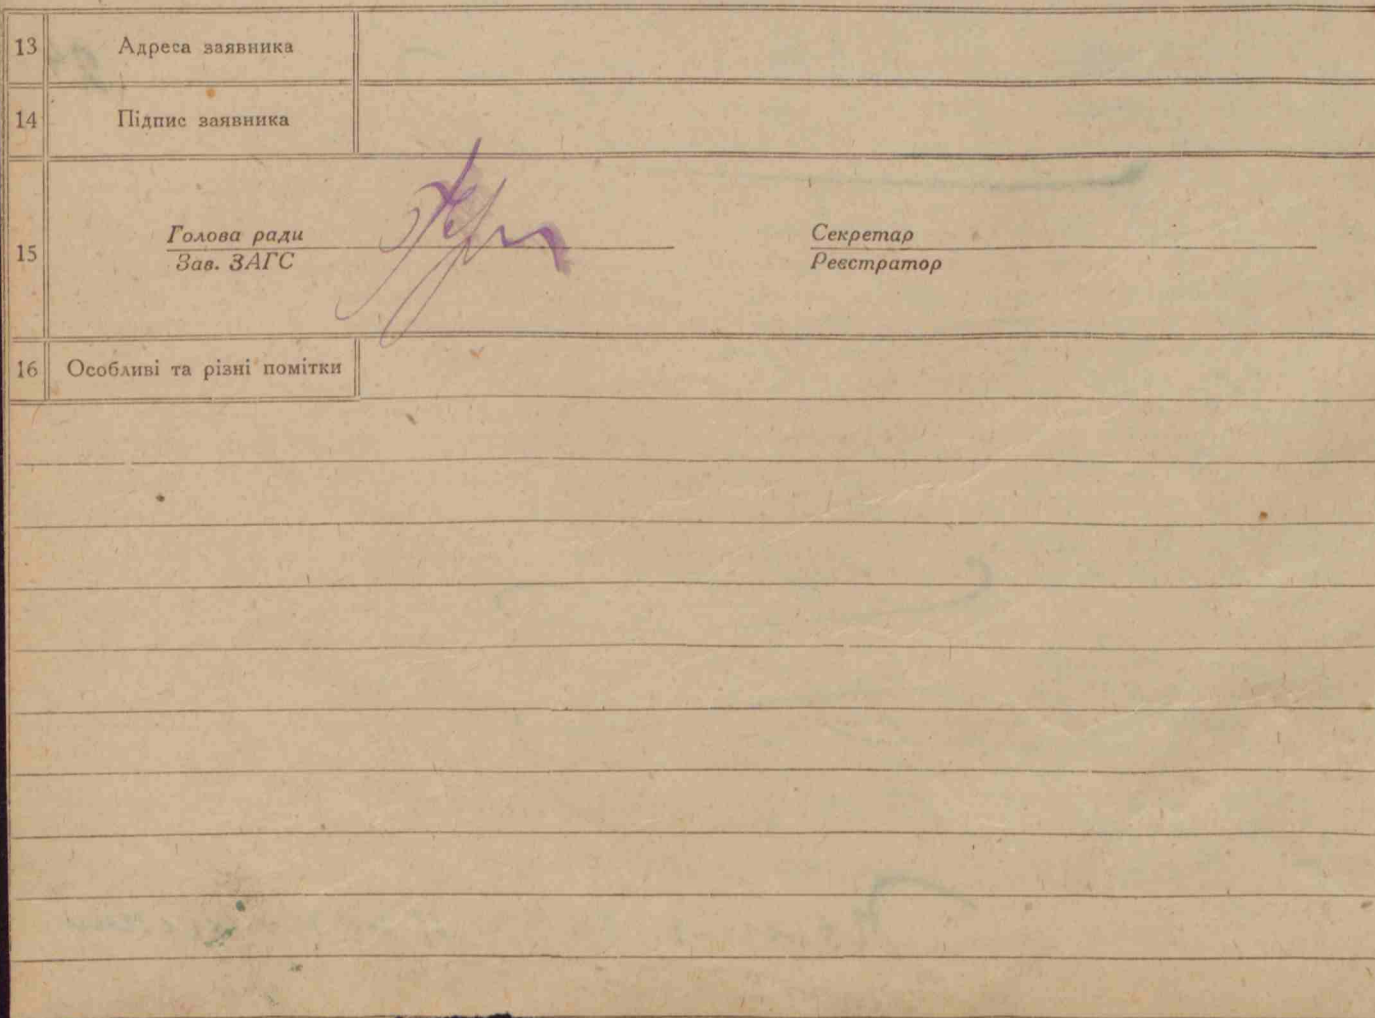 13 Адреса заявника
14 Підпис заявника
15
Голова ради
Зав. ЗАГС
Секретар
Реєстратор
16 Особливі та різні помітки